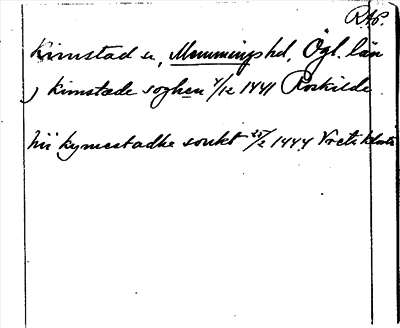 RAP.
Kimstad sn, Memmings hd, Ögl. län
j kimstade soghen 4/12 1441 Roskilde
hii kymestadhe sonkt 25/2 1444 Vreta kloster